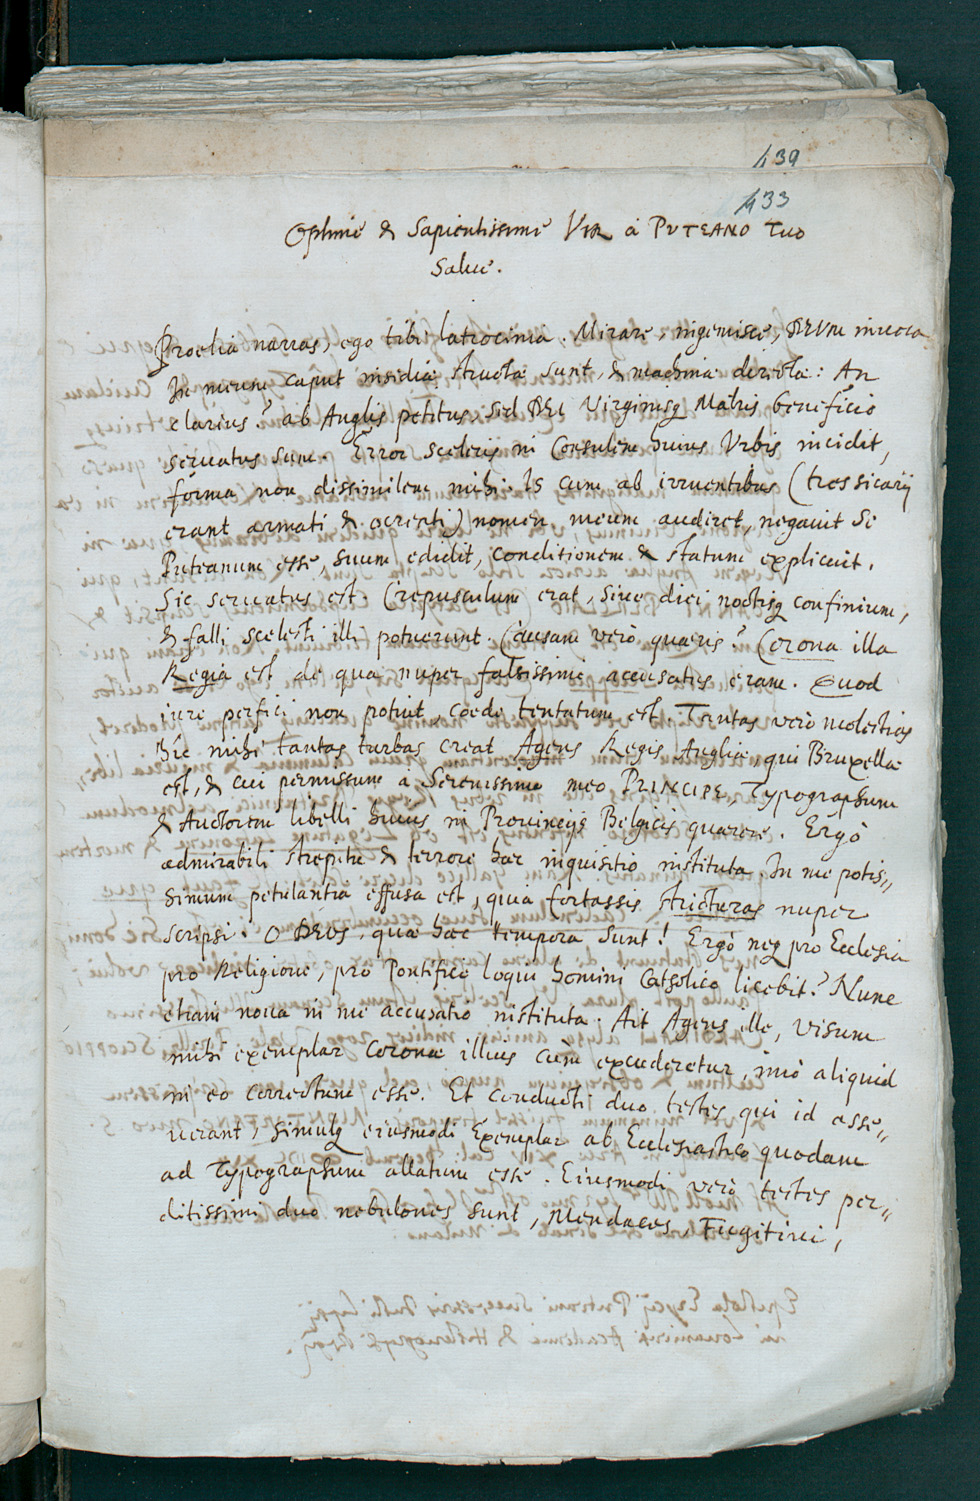 439
433
Optime & Sapientissime VIR à PVTEANO TUO
Salue.
Proelia narras, ego tibi latrocinia. Mirare, ingemisce, DEUM inuoca.
In meum caput insidiæ structæ sunt, & machinæ directæ: An
clarius? ab Anglis petitus, sed DEI Virginisq Matris beneficio
seruatus sum. Error sceleris in Consulem huius Vrbis incidit,
forma non dissimilem mihi. Is cum ab irruentibus (tres sicarij
erant armati & ocreati) nomen meum audiret, negauit se
Puteanum esse, suum edidit, conditionem & statum explicuit.
Sic seruatus est. Crepusculum erat, siue diei noctisq confinium,
& falli scelesti illi potuerunt. Causam verò quæris? Corona illa
Regia est de qua nuper falsissimè accusatus eram. Quod
iure perfici non potuit, cæde tentatum est. Tantas verò molestias
hîc mihi tantas turbas creat Agens Regis Angliæ, qui Bruxellæ
est, & cui permissum à Serenissimo meo PRINCIPE, Typographum
& Auctorem libelli huius in Prouincijs Belgicis quærere. Ergò
admirabili strepitu & terrore hæc inquisitio instituta. In me potis„
simum petulantia effusa est, quia fortassis stricturas nuper
scripsi. O DEUS, quæ hæc tempora sunt! Ergò neq pro Ecclesia
pro Religione, pro Pontifice loqui homini Catholico licebit? Nunc
etiam noua in me accusatio instituta. Ait Agens ille, visum
mihi exemplar Coronæ illius cum excuderetur, imò aliquid
in eo correctum esse. Et conducti duo testes qui id asse„
uerant, simulq eiusmodi Exemplar ab Ecclesiastico quodam
ad Typographum allatum esse. Eiusmodi verò testes per„
ditissimi duo nebulones sunt, Mendaces, Fugitiui,